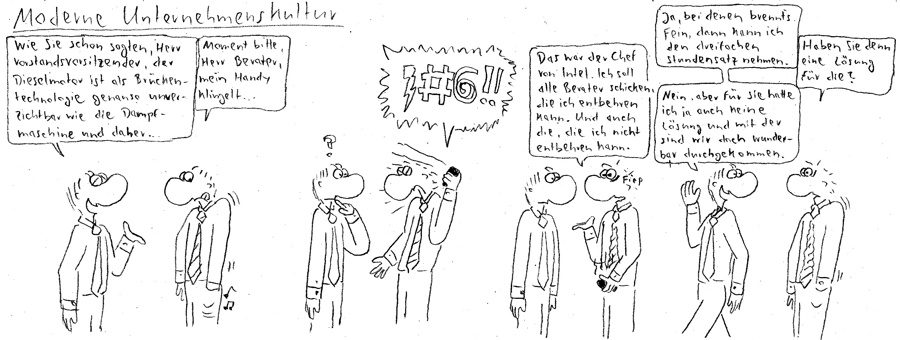 Moderne Unternehmenskultur
Wie Sie schon sagten, Herr
Vorstandsvorsitzender, der
Dieselmotor ist als Brücken-
technologie genauso unver-
zichtbar wie die Dampf-
maschine und daher...
Moment bitte,
Herr Berater,
mein Handy
klingelt...
?
!#6!!..
Das war der Chef
von Intel. Ich soll
alle Berater schicken,
die ich entbehren
kann. Und auch
die, die ich nicht
entbehren kann.
Fiep
Ja, bei denen brennts.
Fein, dann kann ich
den dreifachen
Stundensatz nehmen.
Haben Sie denn
eine Lösung
für die?
Nein. aber für Sie hatte
ich ja auch keine
Lösung und mit der
sind wir doch wunder-
bar durchgekommen.